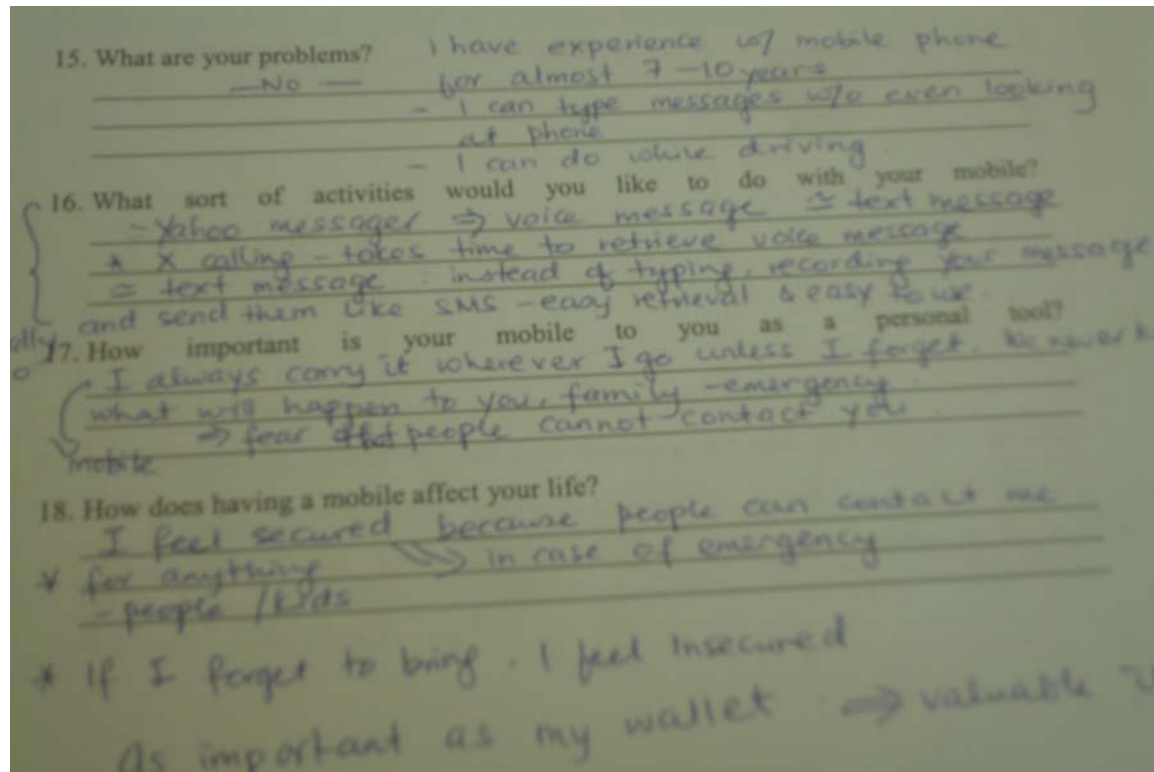 15. What are your problems? I have experience w/ mobile phone
—No— for almost 7–10 years
- I can type messages w/o even looking
at phone
- I can do while driving
16. What sort of activities would you like to do with your mobile?
- Yahoo messager ⇒ voice message ≃ text message
* X calling - takes time to retrieve voice message
≃ text message : instead of typing, recording your message
and send them like SMS - easy retrieval & easy to use.
17. How important is your mobile to you as a personal tool?
I always carry it wherever I go unless I forget. We never
what will happen to you, family - emergency
⇒ fear that people cannot contact you.
mobile
18. How does having a mobile affect your life?
I feel secured because people can contact me
* for anything ⇒ in case of emergency
- people / kids
* If I forget to bring, I feel insecured
As important as my wallet ⇒ valuable